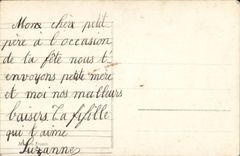 Mon chèr petit
père à l'occasion
de ta fête nous t'
envoyons petite mère
et moi nos meilleurs
baisers. Ta fifille
qui t'aime
Suzanne